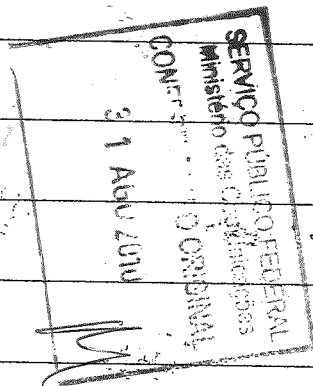 SERVIÇO PÚBLICO FEDERAL
Ministério das Comunicações
CONFERE O ORIGINAL
31 AGO 2010